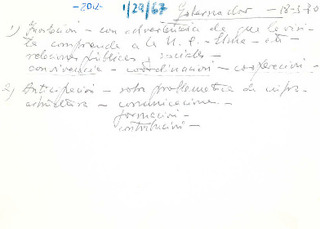 -20h- 1/29/67 Gobernador - 18-3-80
1) Invitación - con advertencia de que la visi-
ta comprende a la U. P. - - etc -
relaciones públicas y sociales -
convivencia - coordinación - cooperación -
2) Anticipación - sobre problemática de infra-
estructura - comunicaciones -
formación -
contribución -